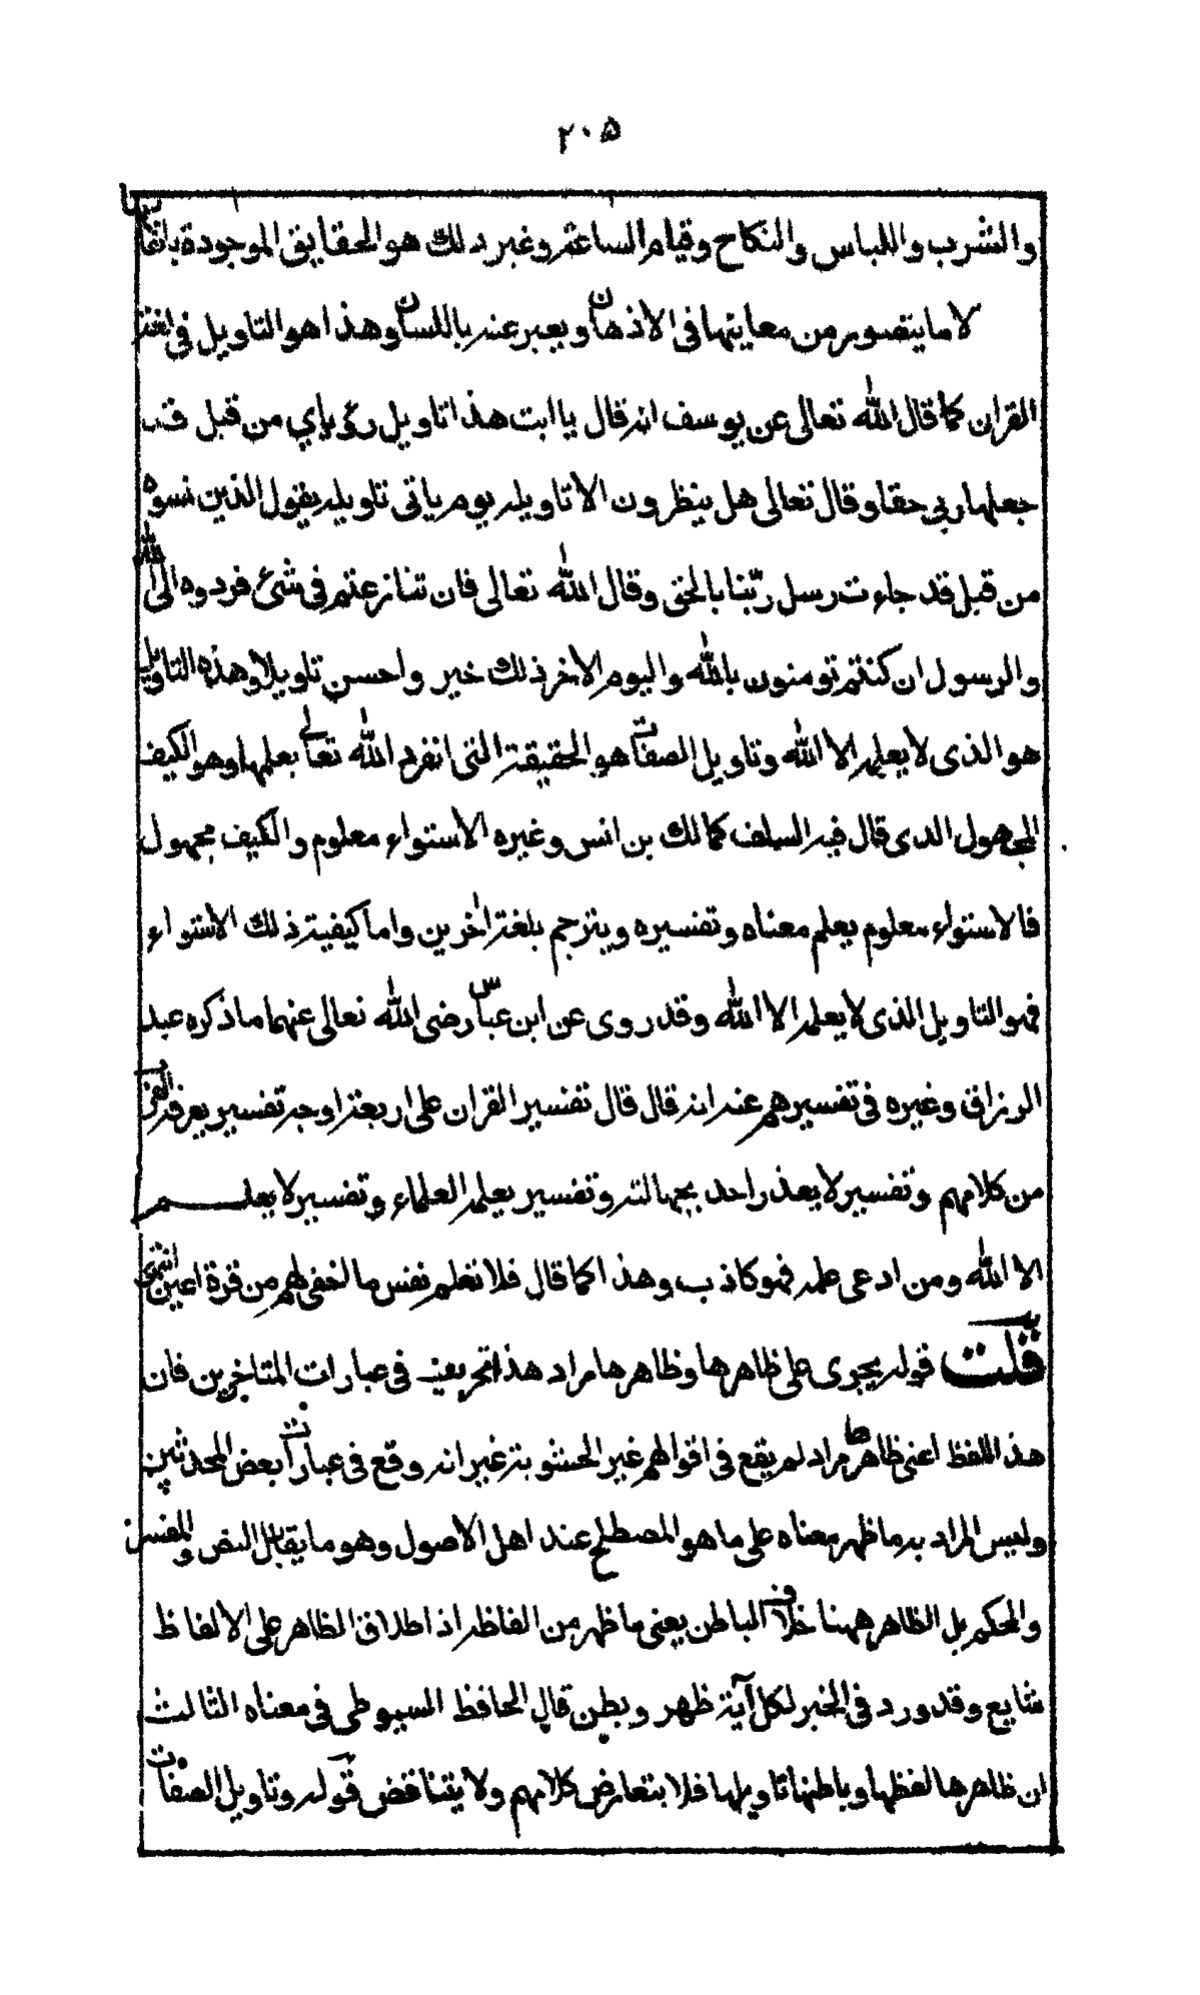 ٢٠٥
والشرب واللباس والنكاح وقيام الساعة وغير ذلك هو الحقايق الموجودة بانفسها
لا ما يتصور من معاينها في الاذهان ويعبر عنه باللسان وهذا هو التاويل في لغة
القران كما قال الله تعالى عن يوسف انه قال يا ابت هذا تاويل رؤياي من قبل قد
جعلها ربي حقا وقال تعالى هل ينظرون الا تاويله يوم ياتى تاويله يقول الذين نسوه
من قبل قد جاءت رسل ربّنا بالحق وقال الله تعالى فان تنازعتم في شئ فردوه الى الله
والرسول ان كنتم تومنون بالله واليوم الاخر ذلك خير واحسن تاويلا وهذه التاويل
هو الذى لا يعلمه الا الله وتاويل الصفات هو الحقيقة التى انفرد الله تعالى بعلمها وهو الكيف
المجهول الذى قال فيه السلف كمالك بن انس وغيره الاستواء معلوم والكيف مجهول
فالاستواء معلوم يعلم معناه وتفسيره ويترجم بلغة اخرين واما كيفية ذلك الاستواء
فهو التاويل الذى لا يعلمه الا الله وقد روى عن ابن عباس رضى الله تعالى عنهما ما ذكره عبد
الرزاق وغيره في تفسيرهم عنه انه قال قال تفسير القران على اربعة اوجه تفسير يعرفه العرب
من كلامهم وتفسير لا يعذر احد بجهالته وتفسير يعلمه العلماء وتفسير لا يعلم
الا الله ومن ادعى علمه فهو كاذب وهذا كما قال فلا تعلم نفس ما اخفى لهم من قرة اعين انتهى
قلت قوله يجرى على ظاهرها وظاهرها مراد هذا تحريف في عبارات المتاخرين فان
هذا اللفظ اعنى ظاهرها مراد لم يقع في اقوالهم غير الحشوية غير انه وقع في عبارات بعض المحدثين
وليس المراد به ما ظهر معناه على ما هو المصطلح عند اهل الاصول وهو ما يقابل النص والمفسر
والمحكم بل الظاهر ههنا خلاف الباطن يعنى ما ظهر من الفاظه اذ اطلاق الظاهر على الالفاظ
شايع وقد ورد في الخبر لكل آية ظهر وبطن قال الحافظ السيوطى في معناه الثالث
ان ظاهرها لفظها وباطنها تاويلها فلا يتعارض كلامهم ولا يتناقض قوله وتاويل الصفات